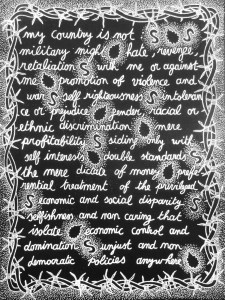 my country is not
military might hate revenge
retaliation $ with me or against
me promotion of violence and
war $ self righteousness $ intoleran
ce or prejudice gender, racial or
ethnic discrimination mere
profitability $ siding only with
self interests double standards
the mere dictate of money prefe
rential treatment of the privileged
$ economic and social disparity
selfishness and non caring that
isolate economic control and
domination $ unjust and non
democratic policies anywhere